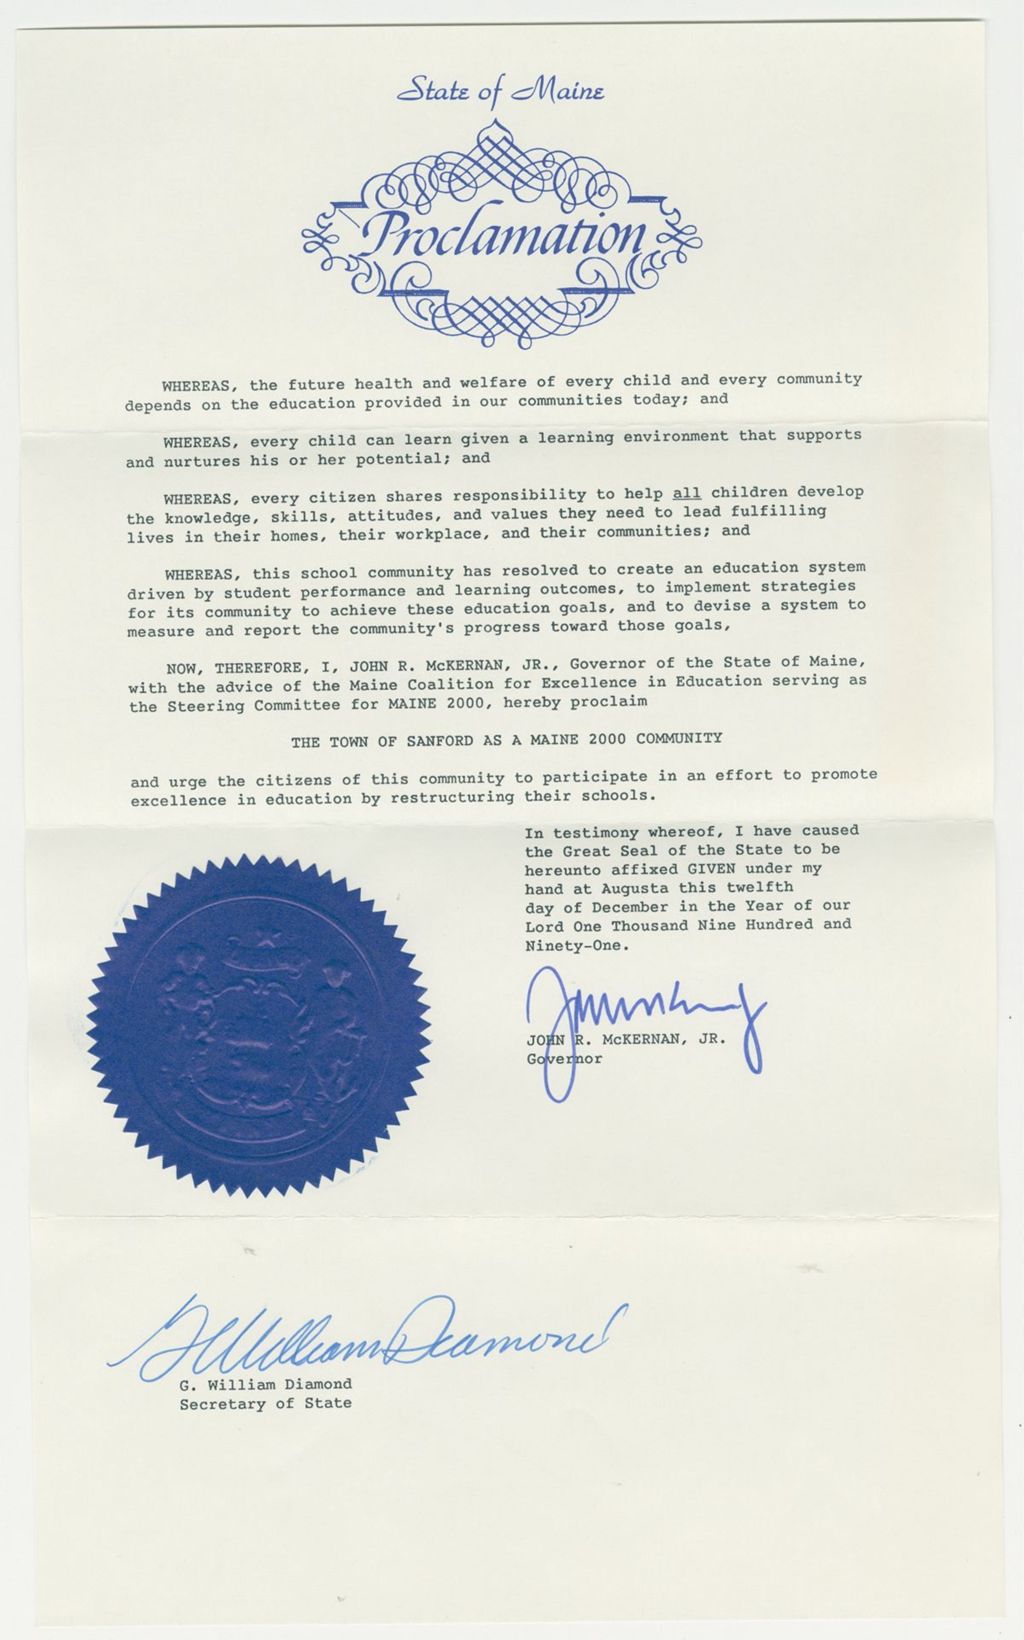 State of Maine
Proclamation
WHEREAS, the future health and welfare of every child and every community
depends on the education provided in our communities today; and
WHEREAS, every child can learn given a learning environment that supports
and nurtures his or her potential; and
WHEREAS, every citizen shares responsibility to help all children develop
the knowledge, skills, attitudes, and values they need to lead fulfilling
lives in their homes, their workplace, and their communities; and
WHEREAS, this school community has resolved to create an education system
driven by student performance and learning outcomes, to implement strategies
for its community to achieve these education goals, and to devise a system to
measure and report the community's progress toward those goals,
NOW, THEREFORE, I, JOHN R. McKERNAN, JR., Governor of the State of Maine,
with the advice of the Maine Coalition for Excellence in Education serving as
the Steering Committee for MAINE 2000, hereby proclaim
THE TOWN OF SANFORD AS A MAINE 2000 COMMUNITY
and urge the citizens of this community to participate in an effort to promote
excellence in education by restructuring their schools.
In testimony whereof, I have caused
the Great Seal of the State to be
hereunto affixed GIVEN under my
hand at Augusta this twelfth
day of December in the Year of our
Lord One Thousand Nine Hundred and
Ninety-One.
JOHN R. McKERNAN, JR.
Governor
G William Diamond
G. William Diamond
Secretary of State